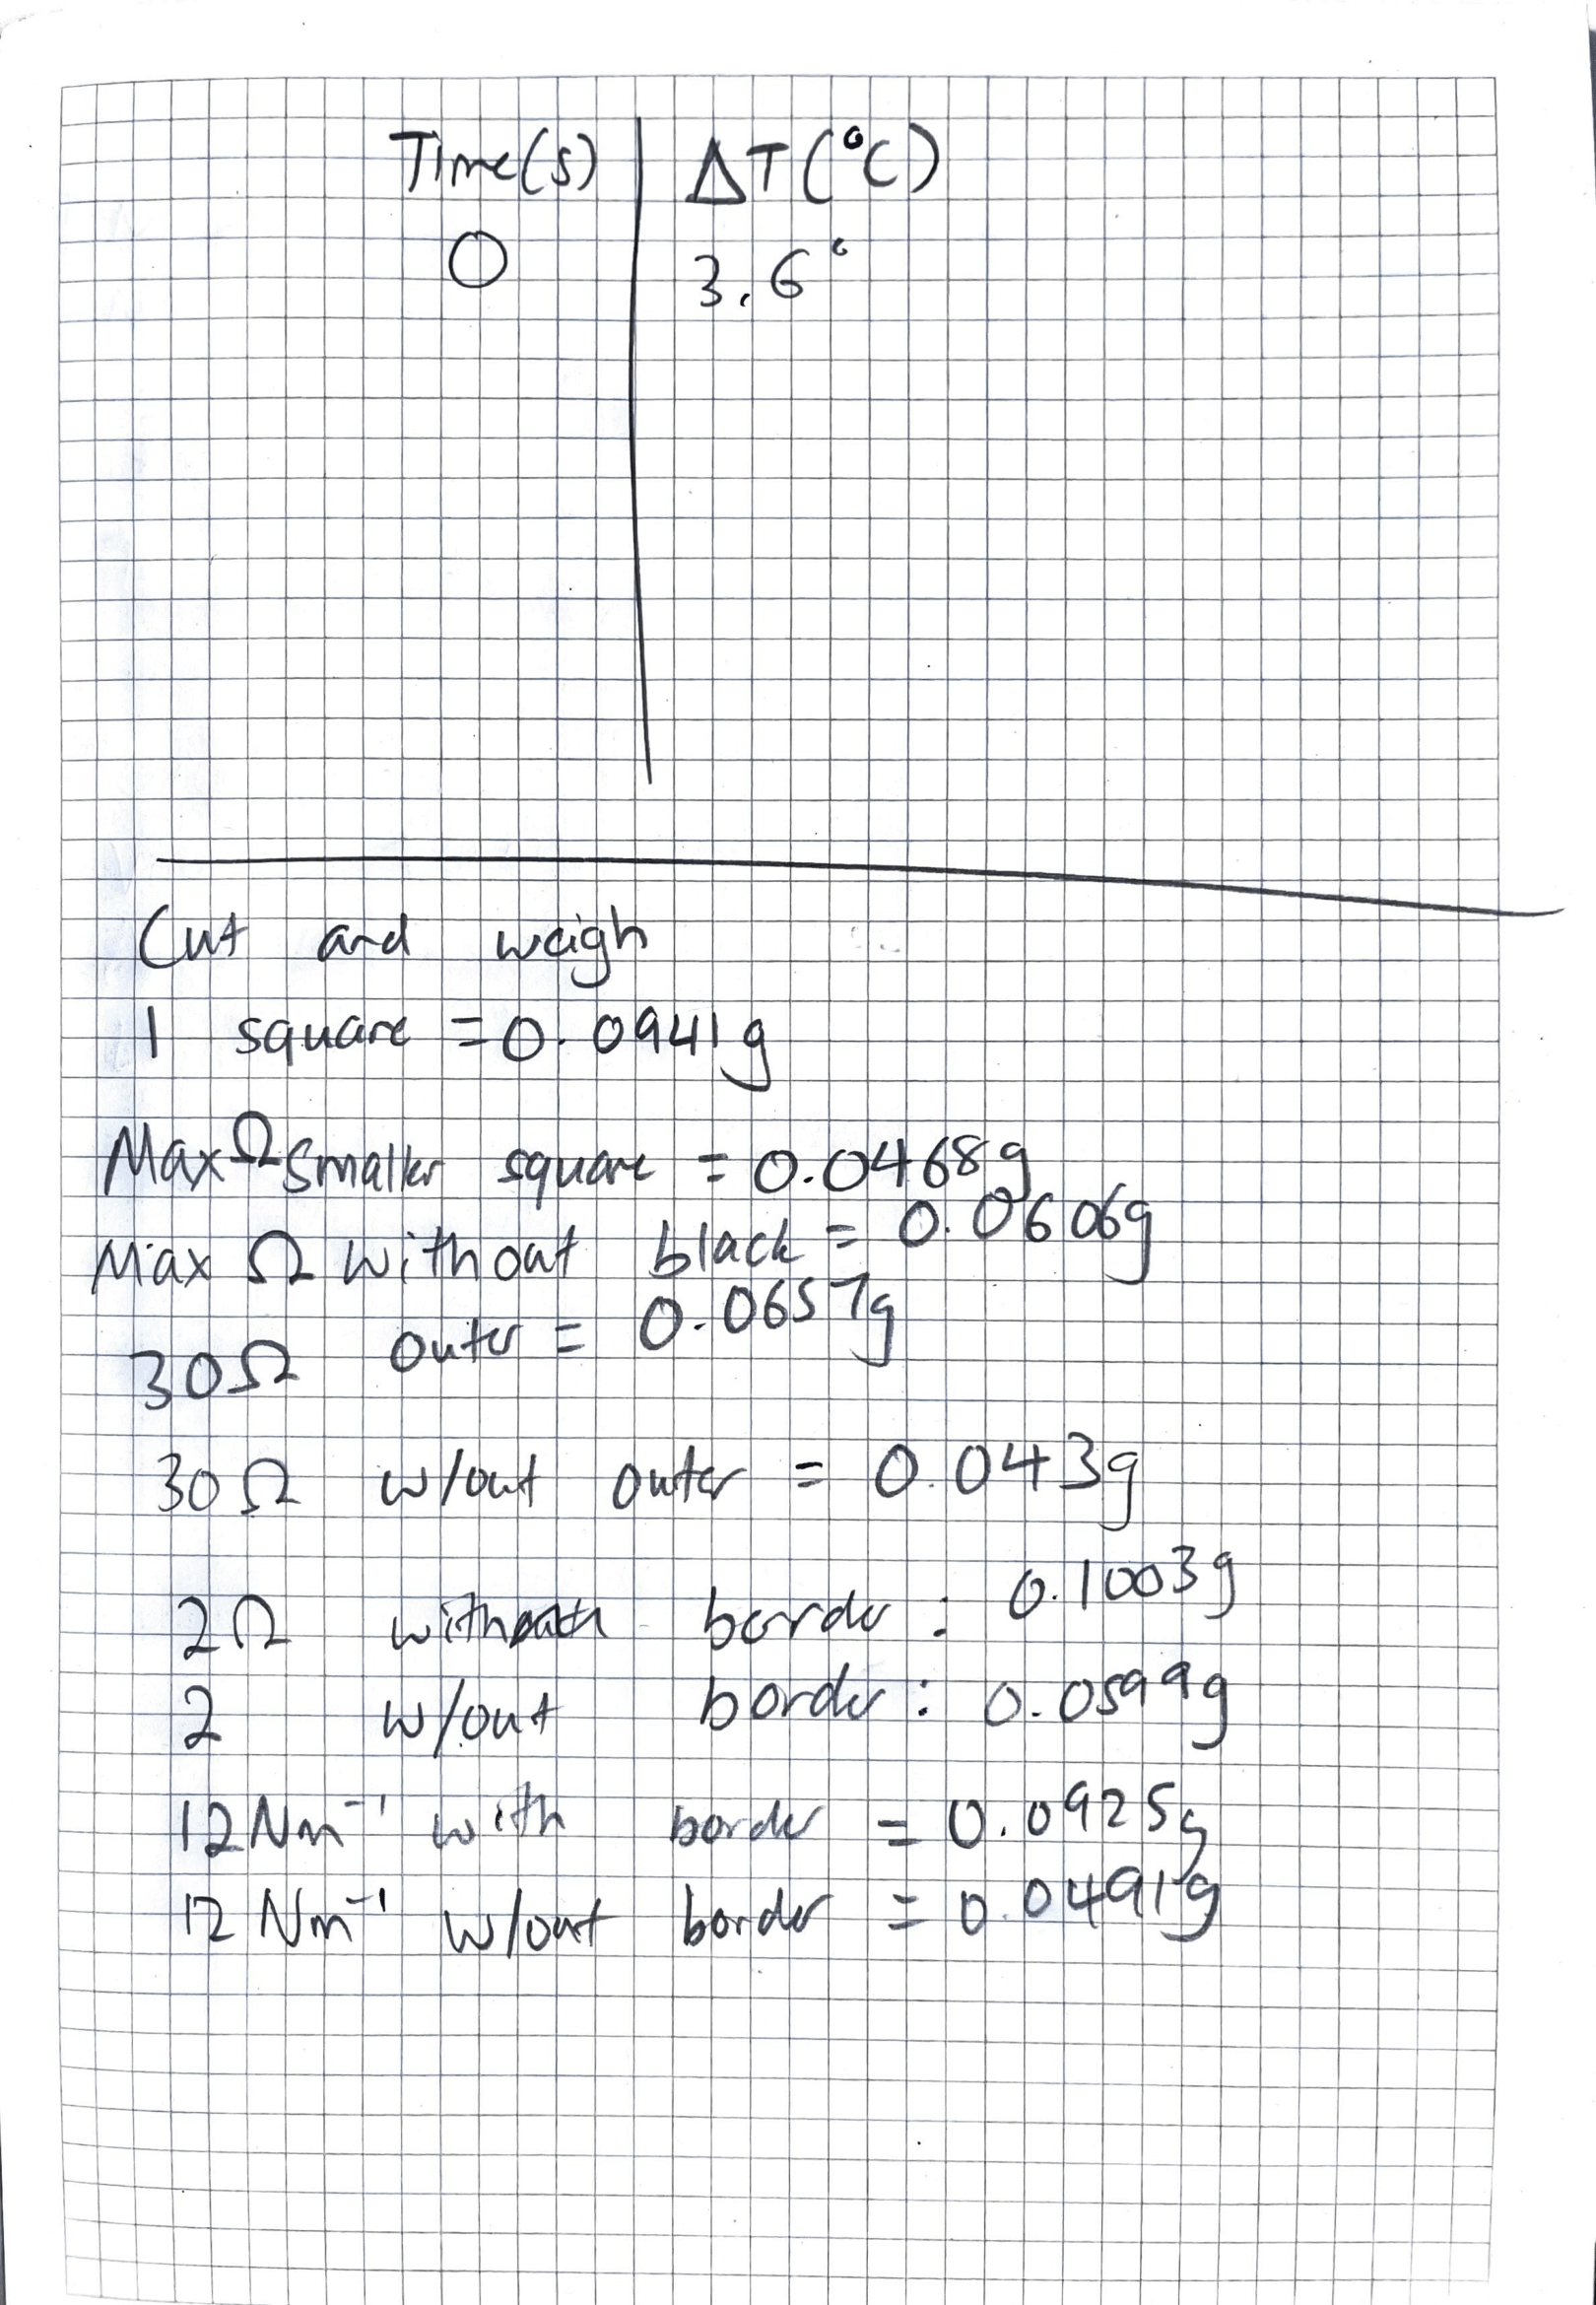 Time(s) ΔT(°C)
0 3.6°
Cut and weigh
1 square = 0.0941g
Max Ω smaller square = 0.0468g
Max Ω without black = 0.0606g
30Ω outer = 0.0657g
30Ω w/out outer = 0.043g
2Ω with border : 0.1003g
2 w/out border : 0.0599g
12Nm⁻¹ with border = 0.0925g
12Nm⁻¹ w/out border = 0.0491g